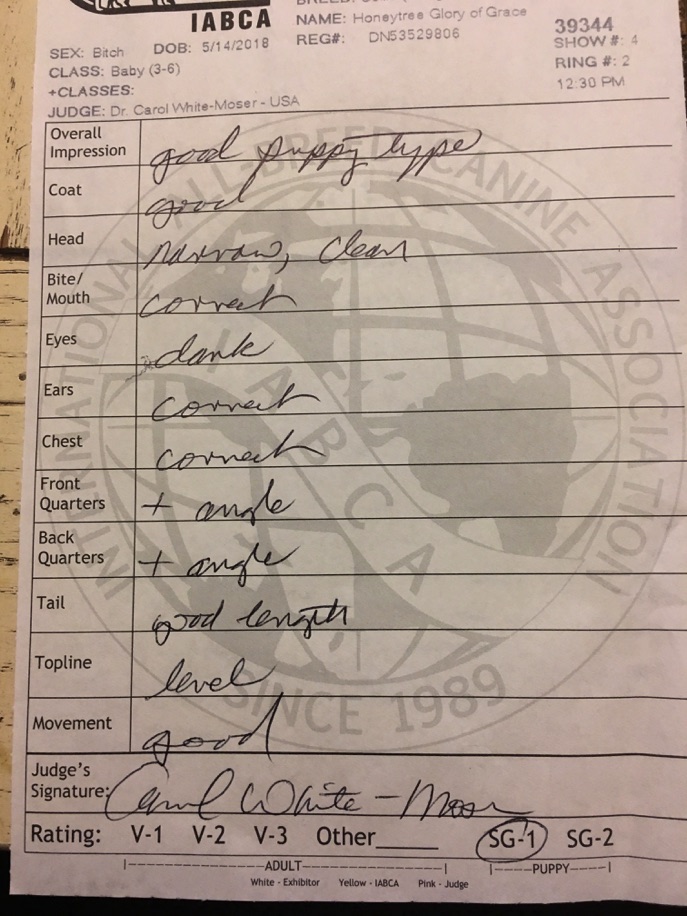 IABCA
NAME: Honeytree Glory of Grace
REG#: DN53529806
39344
SHOW #: 4
RING #: 2
12:30 PM
SEX: Bitch DOB: 5/14/2018
CLASS: Baby (3-6)
+CLASSES:
JUDGE: Dr. Carol White-Moser - USA
Overall Impression good puppy type
Coat good
Head narrow, clean
Bite/ Mouth correct
Eyes dark
Ears correct
Chest correct
Front Quarters + angle
Back Quarters + angle
Tail good length
Topline level
Movement good
Judge's Signature: Carol White-Moser
Rating: V-1 V-2 V-3 Other____ SG-1 SG-2
ADULT PUPPY
White - Exhibitor Yellow - IABCA Pink - Judge
INTERNATIONAL ALL BREED CANINE ASSOCIATION
IABCA
SINCE 1989